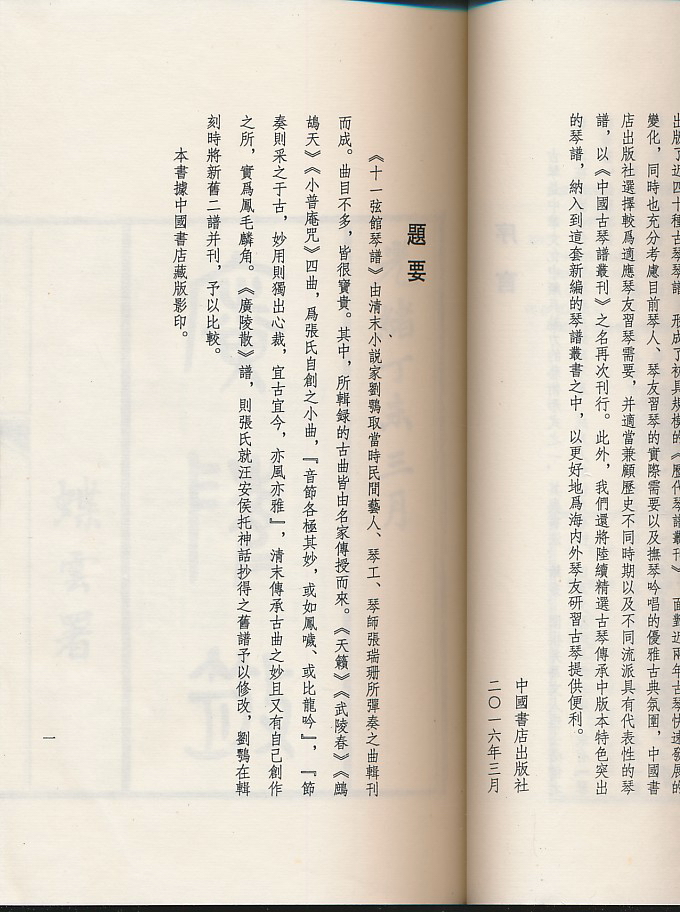 出版了近四十種古琴琴譜，形成了初具規模的《歷代琴譜叢刊》。面對近兩年古琴快速發展的
變化，同時也充分考慮目前琴人、琴友習琴的實際需要以及撫琴吟唱的優雅古典氛圍，中國書
店出版社選擇較爲適應琴友習琴需要，并適當兼顧歷史不同時期以及不同流派具有代表性的琴
譜，以《中國古琴譜叢刊》之名再次刊行。此外，我們還將陸續精選古琴傳承中版本特色突出
的琴譜，納入到這套新編的琴譜叢書之中，以更好地爲海内外琴友研習古琴提供便利。
中國書店出版社
二〇一六年三月
題要
《十一弦館琴譜》由清末小説家劉鶚取當時民間藝人、琴工、琴師張瑞珊所彈奏之曲輯刊
而成。曲目不多，皆很寶貴。其中，所輯録的古曲皆由名家傳授而來。《天籟》《武陵春》《鷓
鴣天》《小普庵咒》四曲，爲張氏自創之小曲，『音節各極其妙，或如鳳噦、或比龍吟』，『節
奏則采之于古，妙用則獨出心裁，宜古宜今，亦風亦雅』，清末傳承古曲之妙且又有自己創作
之所，實爲鳳毛麟角。《廣陵散》譜，則張氏就汪安侯托神話抄得之舊譜予以修改，劉鶚在輯
刻時將新舊二譜并刊，予以比較。
本書據中國書店藏版影印。
一